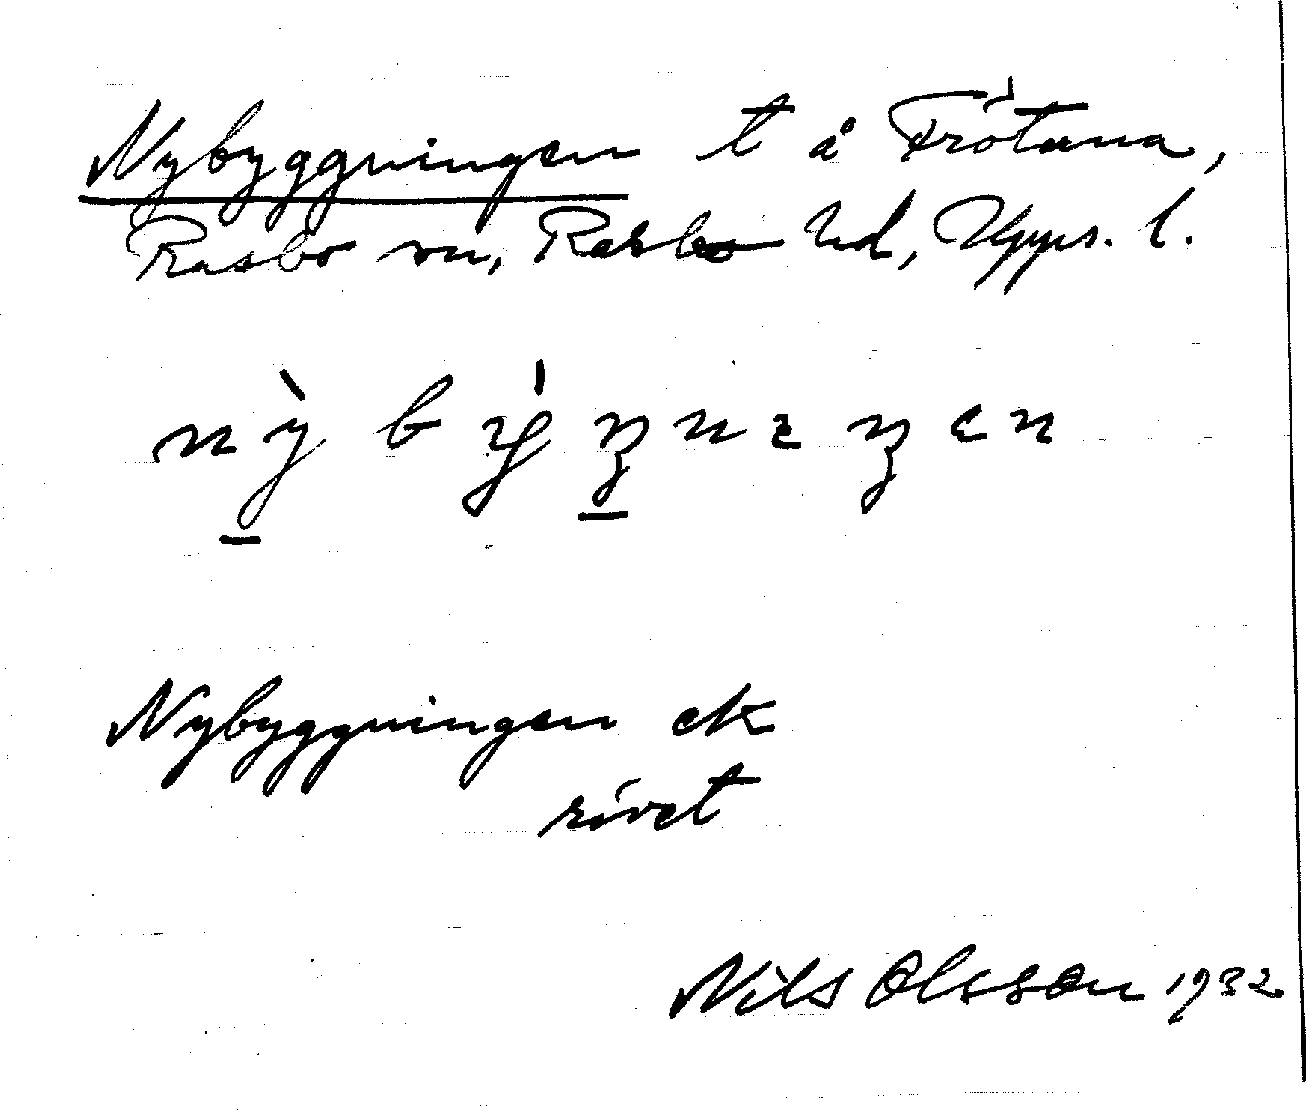 Nybyggningen t å Frötuna,
Rasbo sn, Rasbo hd, Upps. l.
nỳbýŋnɪŋen
Nybyggningen ek
rivet
Nils Olsson 1932